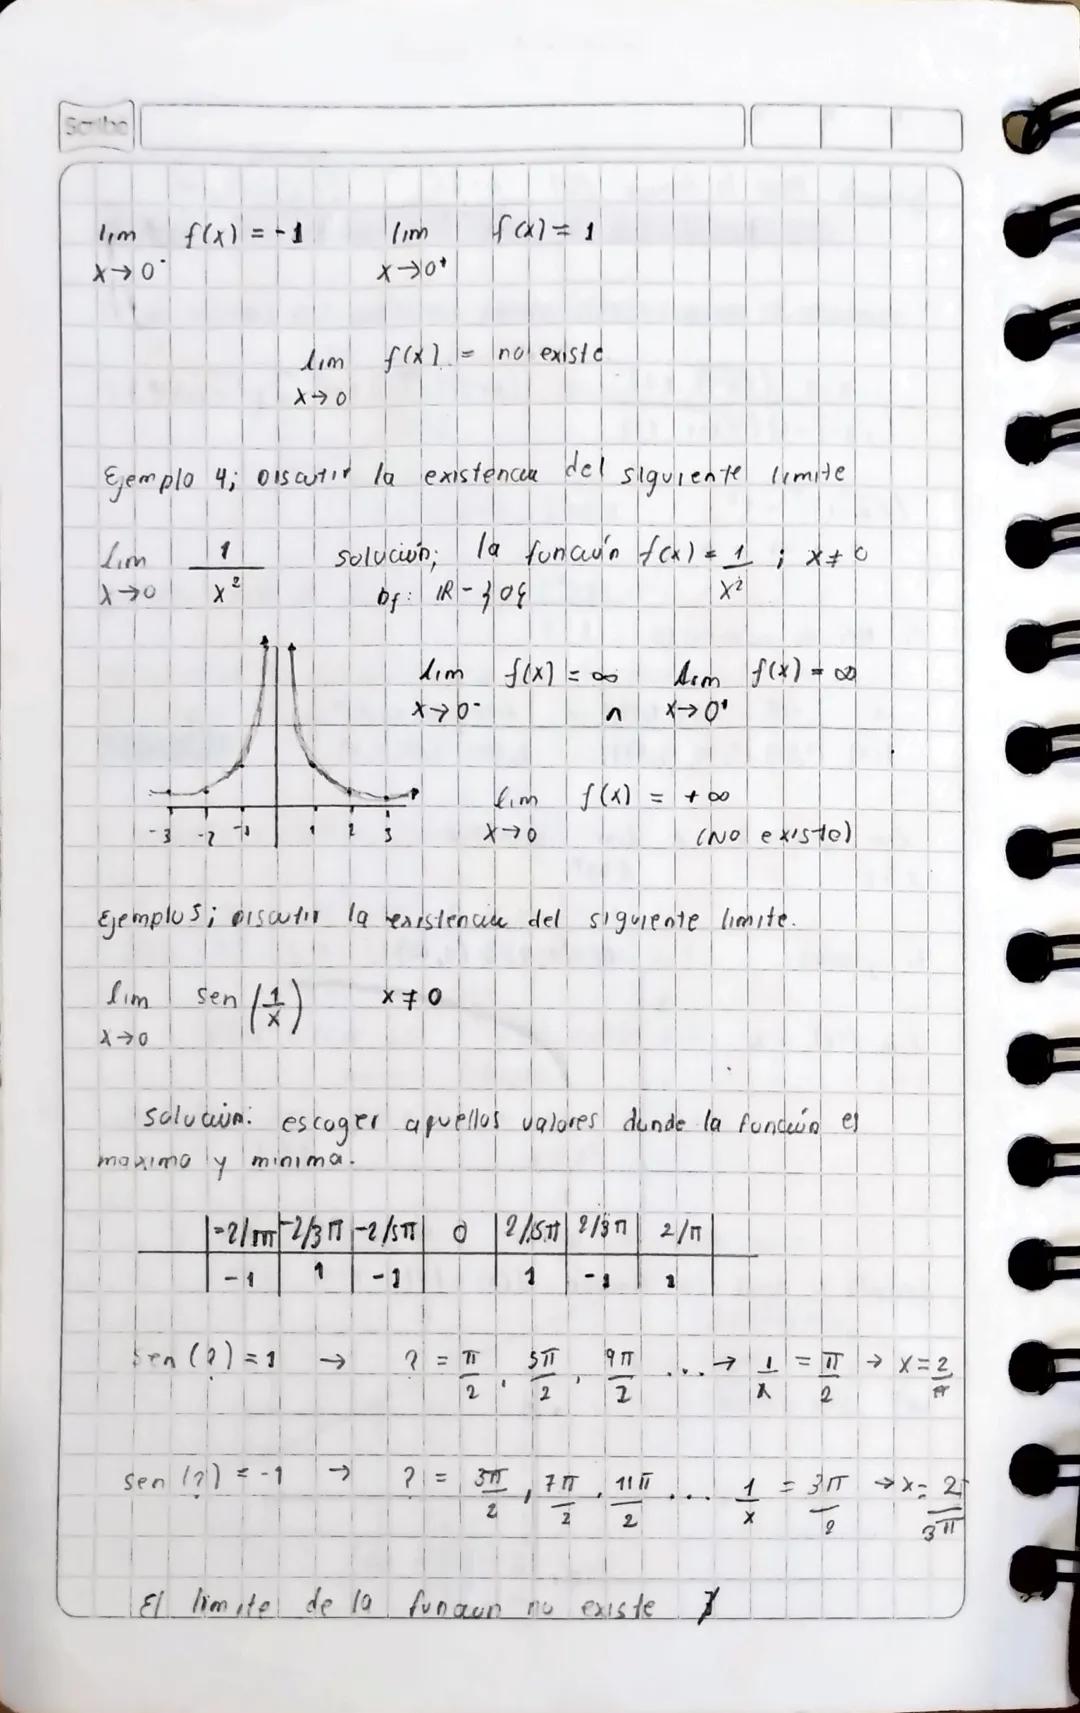 Scribe
lim f(x) = -1 lim f(x) = 1
x→0⁻ x→0⁺
lim f(x) = no existe
x→0
Ejemplo 4; Discutir la existencia del siguiente limite
lim 1/x² solución; la función f(x) = 1/x² ; x≠0
x→0 Df: IR - }0{
lim f(x) = ∞ lim f(x) = ∞
x→0⁻ ∩ x→0⁺
lim f(x) = +∞
x→0 (No existe)
-3 -2 -1 1 2 3
Ejemplo 5; Discutir la existencia del siguiente limite.
lim sen (1/x) x≠0
x→0
solución: escoger aquellos valores donde la función es
maximo y minima.
-2/π -2/3π -2/5π 0 2/5π 2/3π 2/π
-1 1 -1 1 -1 1
sen (?) = 1 → ? = π/2, 5π/2, 9π/2 ... → 1/x = π/2 → x = 2/π
sen (?) = -1 → ? = 3π/2, 7π/2, 11π/2 ... 1/x = 3π/2 → x = 2/3π
El limite de la funcion no existe ∄